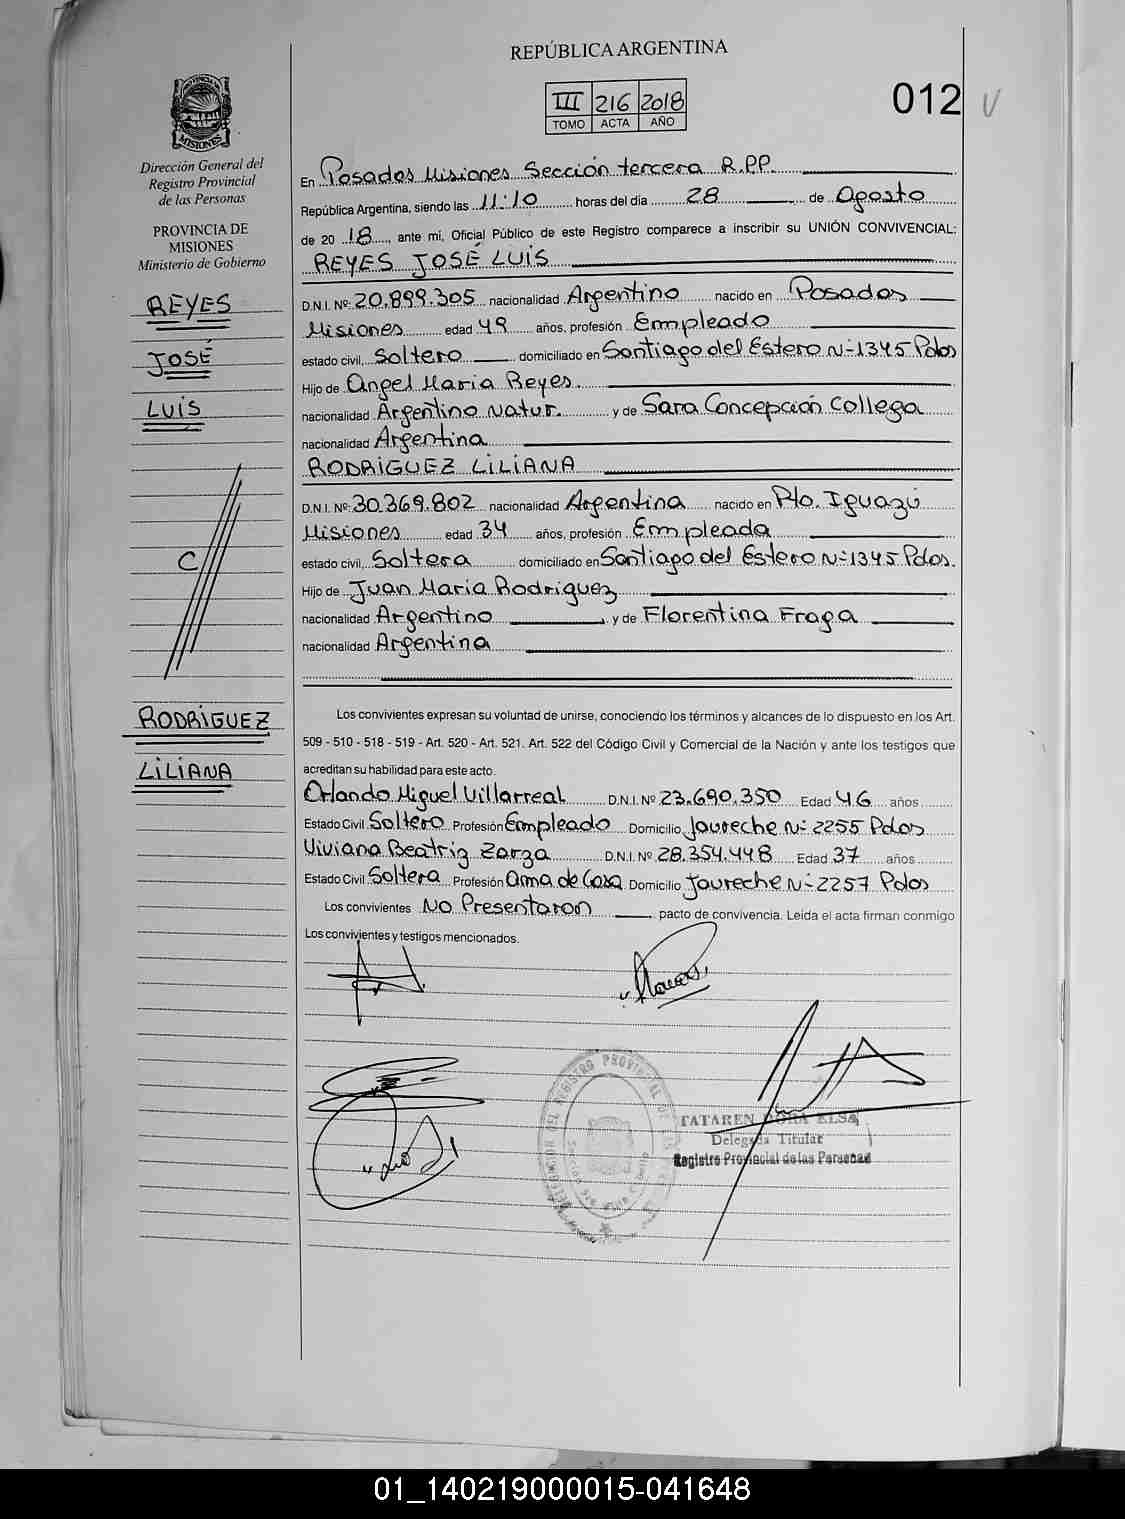 REPÚBLICA ARGENTINA
III 216 2018
TOMO ACTA AÑO
012 V
PROVINCIA DE
MISIONES
Dirección General del
Registro Provincial
de las Personas
PROVINCIA DE
MISIONES
Ministerio de Gobierno
REYES
JOSÉ
LUIS
C
RODRIGUEZ
LILIANA
En Posadas Misiones Sección tercera R.P.P.
República Argentina, siendo las 11:10 horas del día 28 de Agosto
de 20 18, ante mí, Oficial Público de este Registro comparece a inscribir su UNIÓN CONVIVENCIAL:
REYES JOSÉ LUIS
D.N.I. Nº: 20.899.305 nacionalidad Argentino nacido en Posadas
Misiones edad 49 años, profesión Empleado
estado civil, Soltero domiciliado en Santiago del Estero N-1345 Pdas
Hijo de Angel Maria Reyes.
nacionalidad Argentino Natur. y de Sara Concepción Collega
nacionalidad Argentina
RODRIGUEZ LILIANA
D.N.I. Nº: 30.369.802 nacionalidad Argentina nacido en Pto. Iguazú
Misiones edad 34 años, profesión Empleada
estado civil, Soltera domiciliado en Santiago del Estero N-1345 Pdas.
Hijo de Juan Maria Rodriguez
nacionalidad Argentino y de Florentina Fraga
nacionalidad Argentina
Los convivientes expresan su voluntad de unirse, conociendo los términos y alcances de lo dispuesto en los Art.
509 - 510 - 518 - 519 - Art. 520 - Art. 521. Art. 522 del Código Civil y Comercial de la Nación y ante los testigos que
acreditan su habilidad para este acto.
Orlando Miguel Villarreal D.N.I. Nº 23.690.350 Edad 46 años
Estado Civil Soltero Profesión Empleado Domicilio Jaureche N- 2255 Pdas
Viviana Beatriz Zarza D.N.I. Nº 28.354.448 Edad 37 años
Estado Civil Soltera Profesión Ama de Casa Domicilio Jaureche N- 2257 Pdas
Los convivientes No Presentaron pacto de convivencia. Leída el acta firman conmigo
Los convivientes y testigos mencionados.
DELEGACION DEL REGISTRO PROVINCIAL DE LAS
TATAREN DORA ELSA
Delegada Titular
Registro Provincial de las Personas
01_140219000015-041648